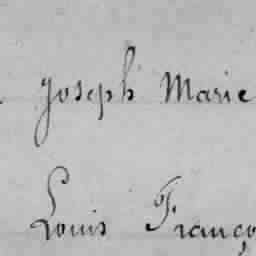 Joseph Marie
Louis Franço